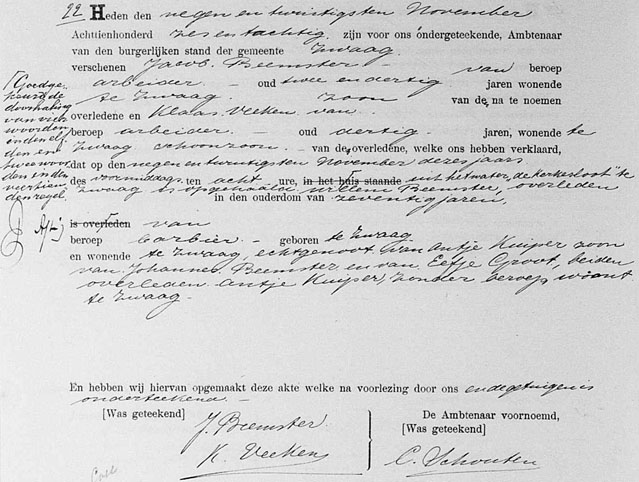 22 Heden den negen en twintigsten November
Achttienhonderd zes en tachtig zijn voor ons ondergeteekende, Ambtenaar
van den burgerlijken stand der gemeente Zwaag
verschenen Jacob Beemster van beroep
arbeider oud twee en dertig jaren wonende
te Zwaag zoon van de na te noemen
overledene en Klaas Veeken van
beroep arbeider oud dertig jaren, wonende te
Zwaag schoonzoon van de overledene, welke ons hebben verklaard,
dat op den negen en twintigsten November dezes jaars
des voormiddags ten acht ure, in het huis staande uit het water, de Kerkesloot te
Zwaag is opgehaald Willem Beemster, overleden
in den ouderdom van zeventig jaren,
is overleden van
beroep barbier geboren te Zwaag
en wonende te Zwaag, echtgenoot van Antje Kuiper zoon
van Johannes Beemster en van Eefje Groot, beiden
overleden Antje Kuiper, zonder beroep woont
te Zwaag
Goedge-
keurd de
doorhaling
van vier
woorden
in den elf
den en
twee woor
den in den
veertien
den regel
En hebben wij hiervan opgemaakt deze akte welke na voorlezing door ons en de getuigen is
onderteekend
[Was geteekend]
De Ambtenaar voornoemd,
[Was geteekend]
J. Beemster
K. Veeken
C. Schouten